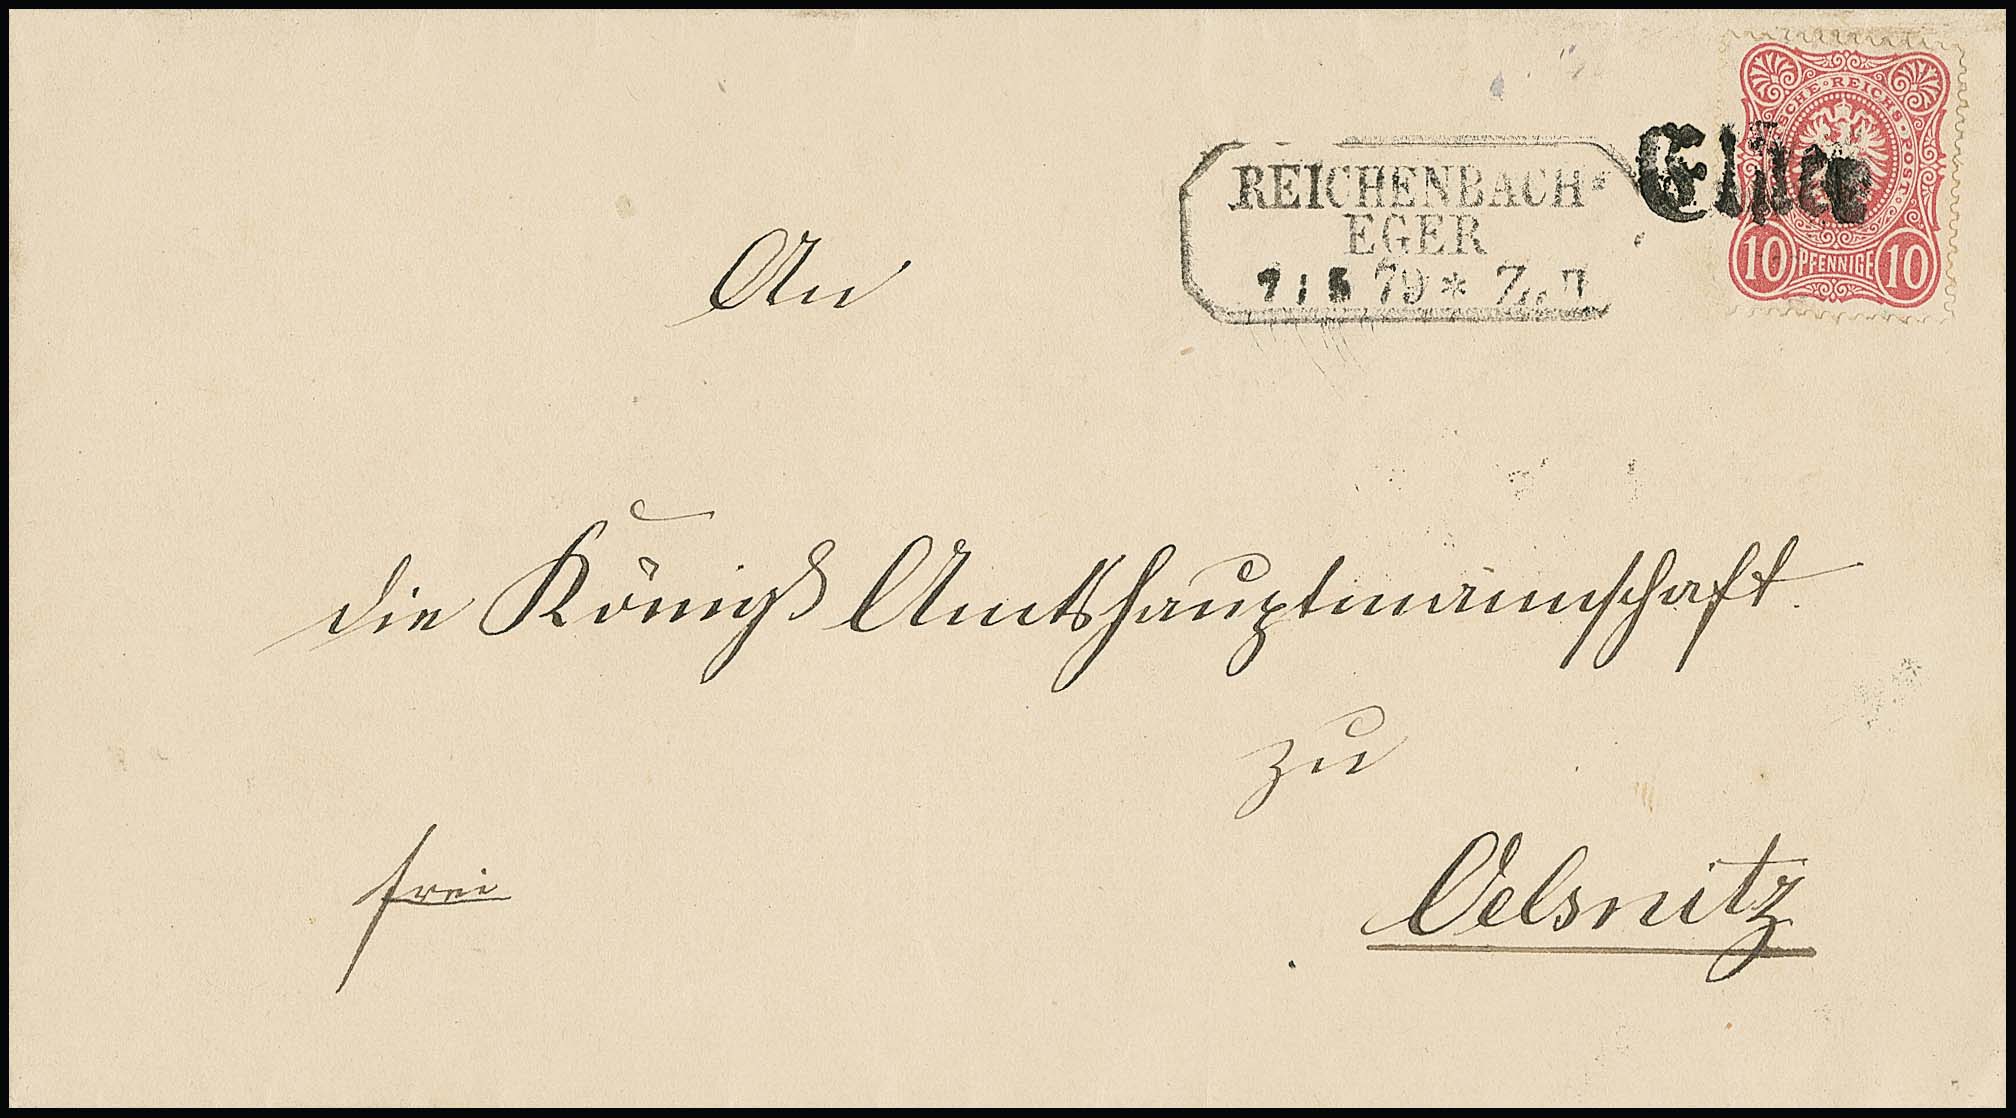 REICHENBACH
EGER
7 / 5 79 * Z. 7
Elster
DEUTSCHE · REICHS-POST
10 PFENNIGE 10
An
die Königl Amtshauptmannschaft
zu
frei
Oelsnitz